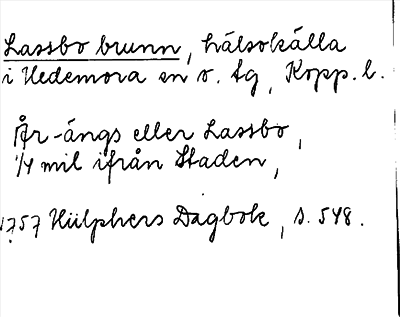 Lassbo brunn, hälsokälla
i Hedemora sn o. tg, Kopp. l.
År-ängs eller Lassbo,
1/4 mil ifrån Staden,
1757 Hülphers Dagbok, s. 548.